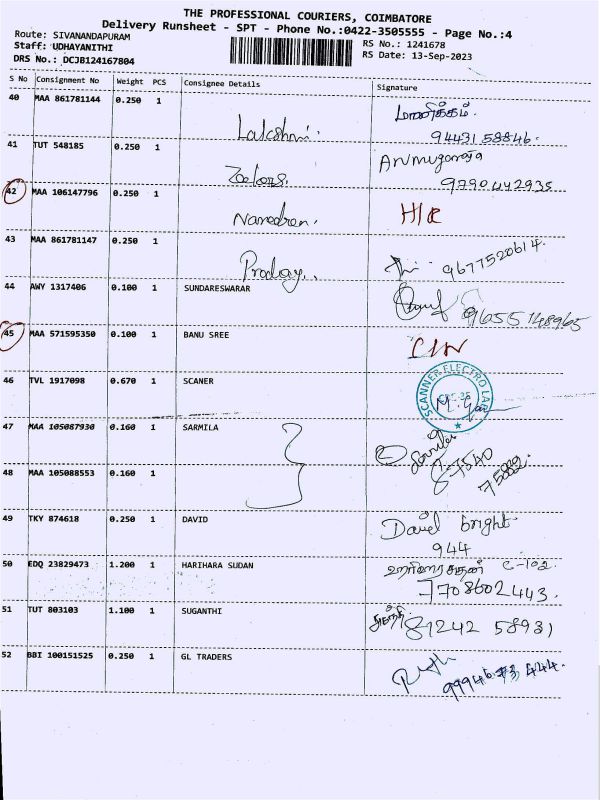 THE PROFESSIONAL COURIERS, COIMBATORE
Delivery Runsheet - SPT - Phone No.:0422-3505555 - Page No.:4
Route: SIVANANDAPURAM
RS No.: 1241678
Staff: UDHAYANITHI
RS Date: 13-Sep-2023
DRS No.: DCJB124167804
S No Consignment No Weight PCS Consignee Details Signature
40 MAA 861781144 0.250 1 Lakshmi மாணிக்கம்.
94431 58846.
41 TUT 548185 0.250 1 Arumugam
9790442935
42 MAA 106147796 0.250 1 Narendren.
43 MAA 861781147 0.250 1 9677520614.
44 AWY 1317406 0.100 1 SUNDARESWARAR
9655748965
45 MAA 571595350 0.100 1 BANU SREE
46 TVL 1917098 0.670 1 SCANER SCANNER ELECTRO LAB
47 MAA 105087930 0.160 1 SARMILA
87540
75882.
48 MAA 105088553 0.160 1
49 TKY 874618 0.250 1 DAVID David bright
944
50 EDQ 23829473 1.200 1 HARIHARA SUDAN ஹரிஹரசுதன் C-102
7708602443.
51 TUT 803103 1.100 1 SUGANTHI சுகந்தி 81242 58931
52 BBI 100151525 0.250 1 GL TRADERS